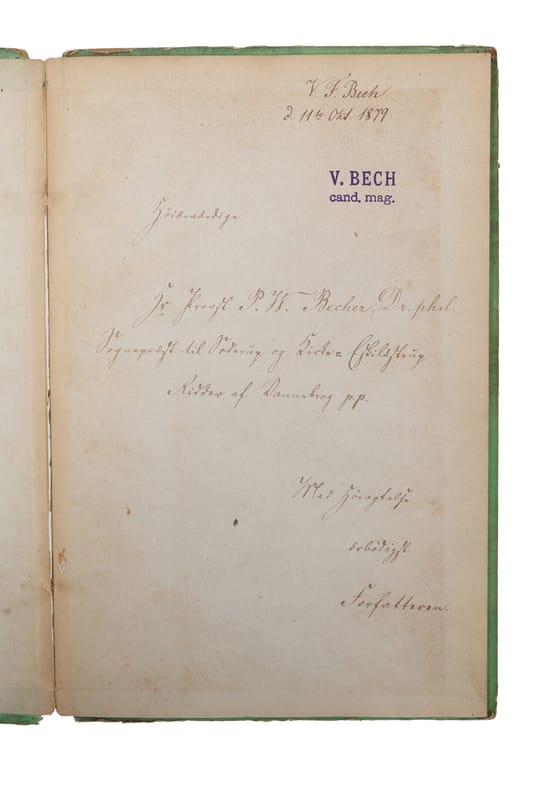 V. F. Bech
d. 11te Okt. 1879
V. BECH
cand. mag.
Höiærværdige
Hr Provst P. W. Becher, Dr. phil.
Sognepræst til Söderup og Kirke= Eskilstrup
Ridder af Dannebrog p.p.
Med Höiagtelse
ærbödigst
Forfatteren.